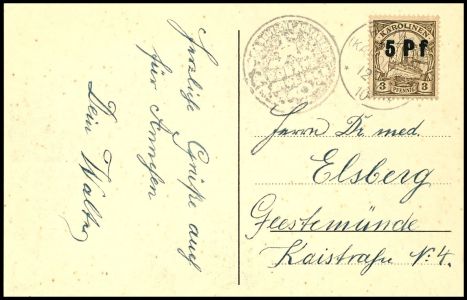 Herzliche Grüße auch
für Annchen
Dein Walter
KAROLINEN
5 Pf
3 PFENNIG 3
12
10
Herrn Dr. med.
Elsberg
Geestemünde
Kaistraße No 4.